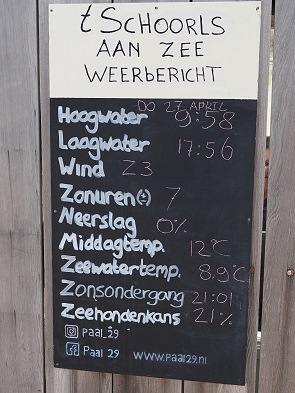 't SCHOORLS
AAN ZEE
WEERBERICHT
DO 27 APRIL
Hoogwater 9:58
Laagwater 17:56
Wind Z3
Zonuren(±) 7
Neerslag 0%
Middagtemp. 12°C
Zeewatertemp. 8,9°C
Zonsondergang 21:01
Zeehondenkans 21%
paal_29
Paal 29 www.paal29.nl